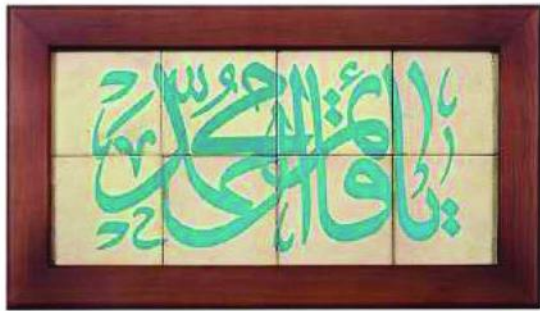 یا قائم آل محمد